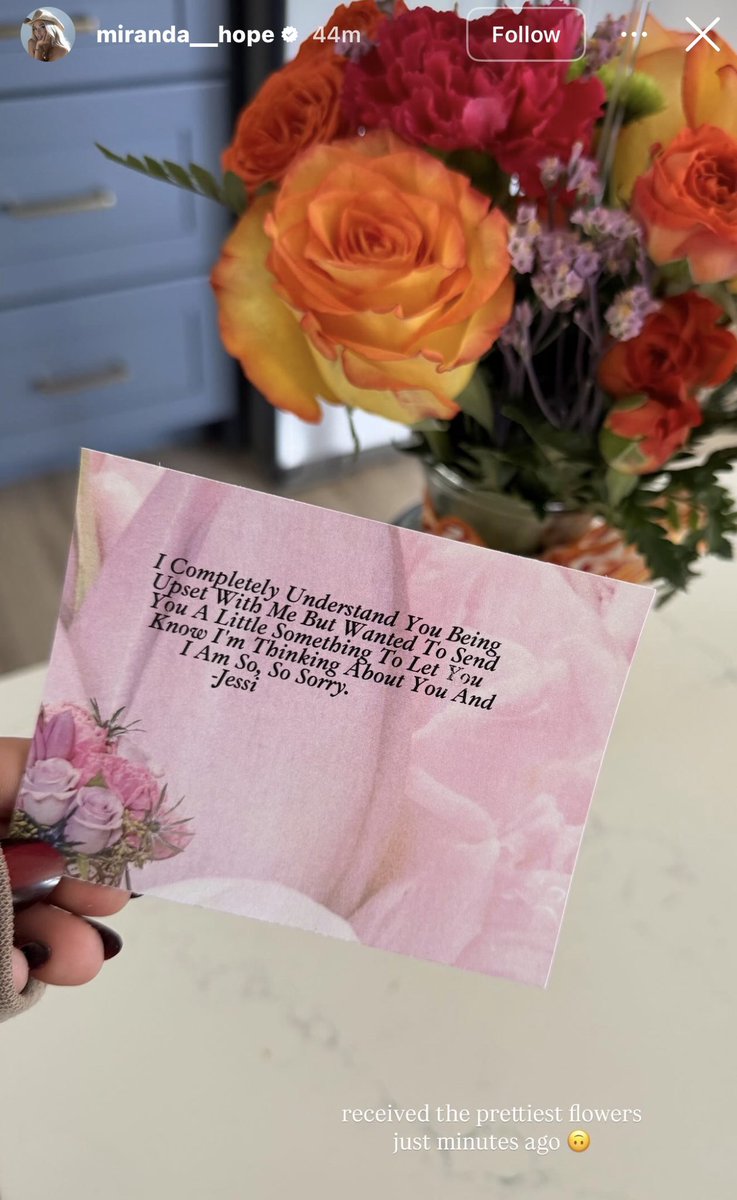 miranda__hope 44m Follow
I Completely Understand You Being
Upset With Me But Wanted To Send
You A Little Something To Let You
Know I'm Thinking About You And
I Am So, So Sorry.
-Jessi
received the prettiest flowers
just minutes ago 🙃